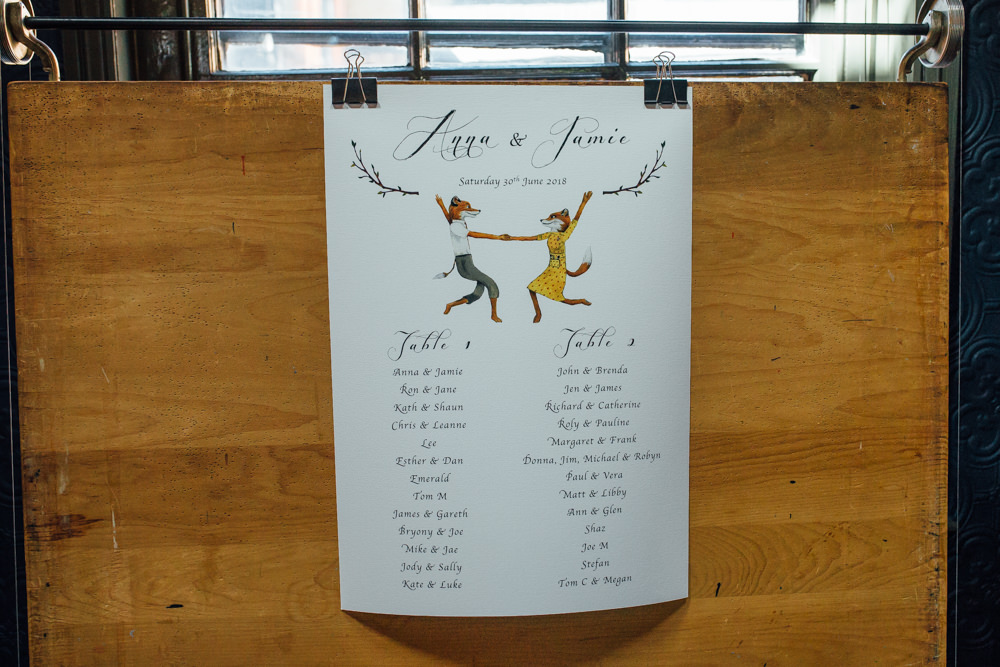 Anna & Jamie
Saturday 30th June 2018
Table 1
Anna & Jamie
Ron & Jane
Kath & Shaun
Chris & Leanne
Lee
Esther & Dan
Emerald
Tom M
James & Gareth
Bryony & Joe
Mike & Jae
Jody & Sally
Kate & Luke
Table 2
John & Brenda
Jen & James
Richard & Catherine
Roly & Pauline
Margaret & Frank
Donna, Jim, Michael & Robyn
Paul & Vera
Matt & Libby
Ann & Glen
Shaz
Joe M
Stefan
Tom C & Megan